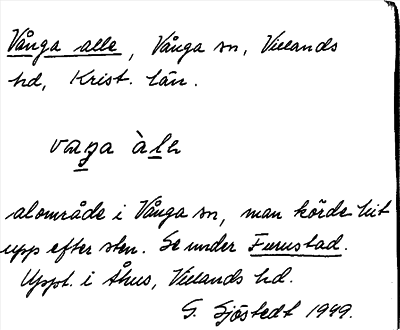 Vånga alle, Vånga sn, Villands
hd, Krist. län.
vaŋa àlə
alområde i Vånga sn, man körde hit
upp efter sten. Se under Furustad.
Uppt. i Åhus, Villands hd.
G. Sjöstedt 1949.